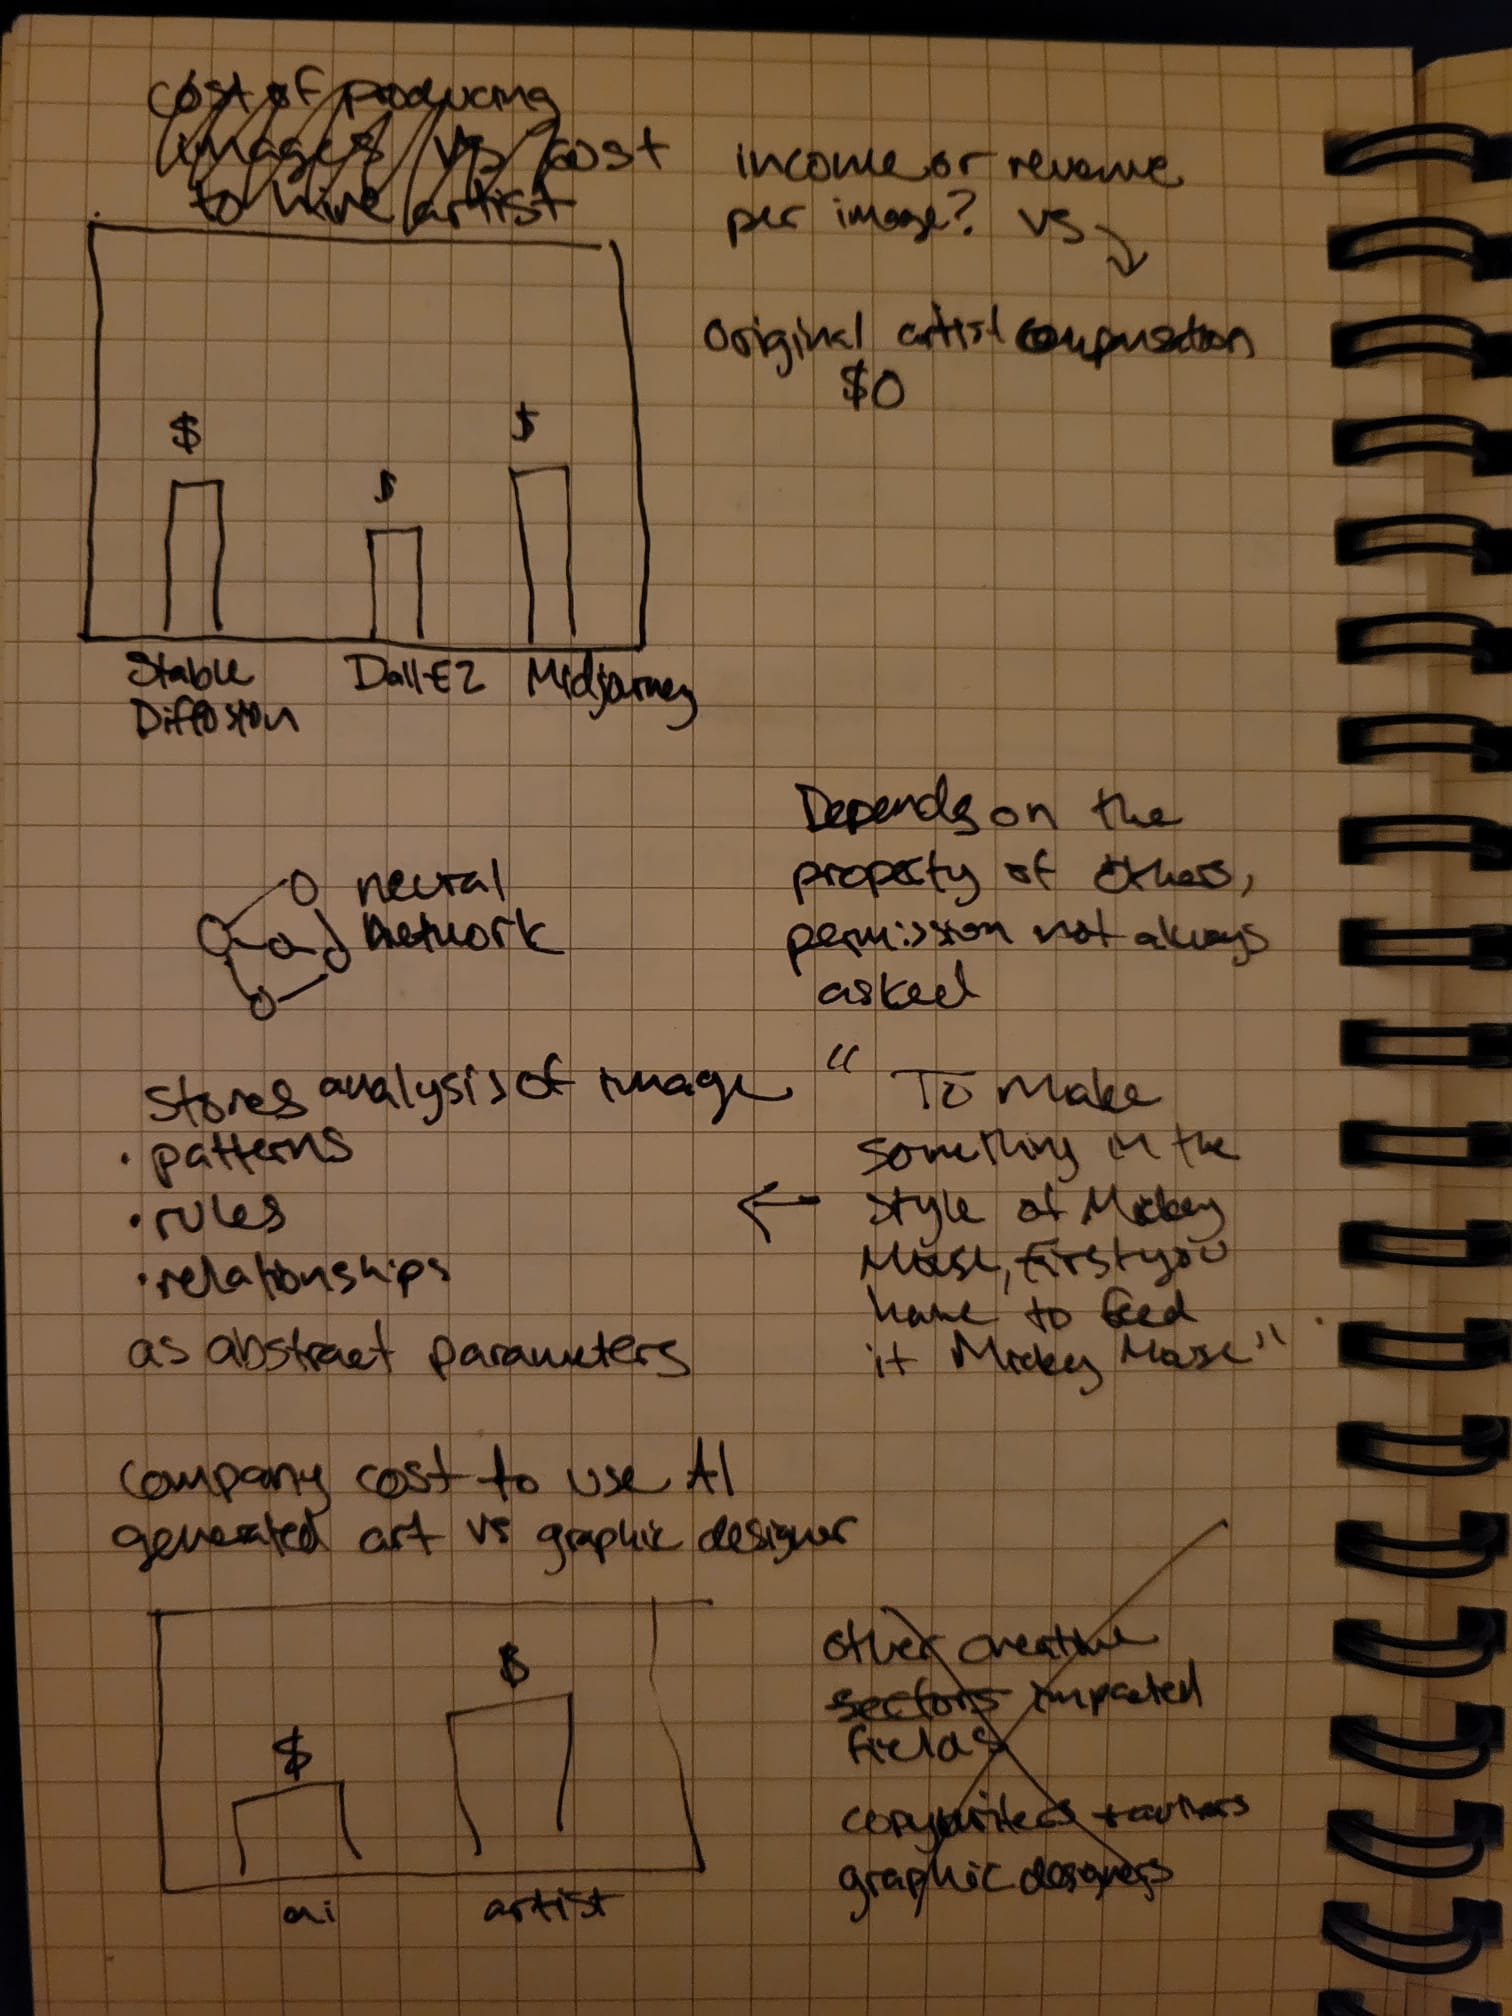 cost of producing
images vs cost
to hire artist
income or revenue
per image? vs
original artist compensation
$0
$
$
$
Stable
Diffusion
Dall-E2
Midjourney
neural
network
Depends on the
property of others,
permission not always
asked
Stores analysis of image
• patterns
• rules
• relationships
as abstract parameters
"To make
something in the
style of Mickey
Mouse, first you
have to feed
it Mickey Mouse"
Company cost to use AI
generated art vs graphic designer
$
$
ai
artist
other creative
sectors impacted
fields
copywriters + authors
graphic designers